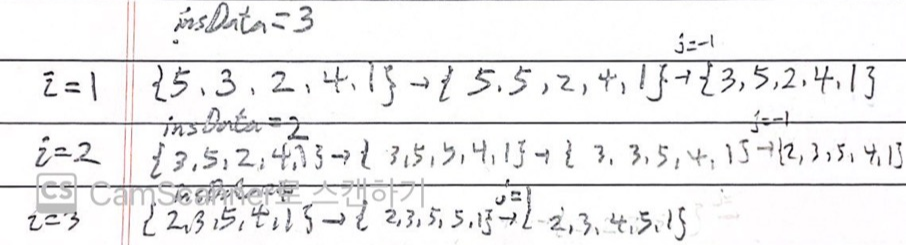 insData=3
j=-1
i=1 {5,3,2,4,1}→{5,5,2,4,1}→{3,5,2,4,1}
insData=2 j=-1
i=2 {3,5,2,4,1}→{3,5,5,4,1}→{3,3,5,4,1}→{2,3,5,4,1}
CS CamScanner로 스캔하기
j=1
i=3 {2,3,5,4,1}→{2,3,5,5,1}→{2,3,4,5,1}